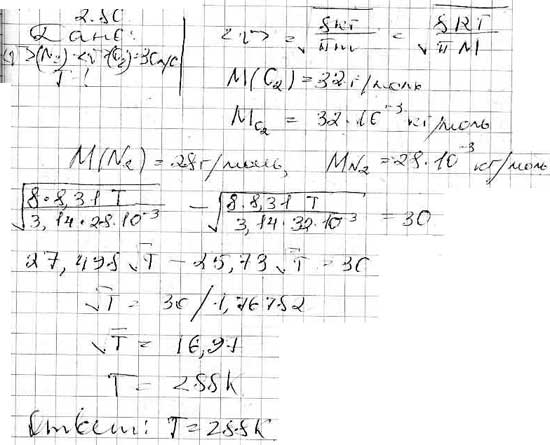 2.80
Дано:
<v>(N₂)-<v>(O₂)=30м/с
T?
<v> = √(8kT/πm) = √(8RT/πM)
M(O₂) = 32 г/моль
M O₂ = 32·10⁻³ кг/моль
M(N₂) = 28 г/моль, M N₂ = 28·10⁻³ кг/моль
√(8·8,31 T / 3,14·28·10⁻³) − √(8·8,31 T / 3,14·32·10⁻³) = 30
27,498√T − 25,73√T = 30
√T = 30/1,76752
√T = 16,97
T = 288K
Ответ: T = 288K